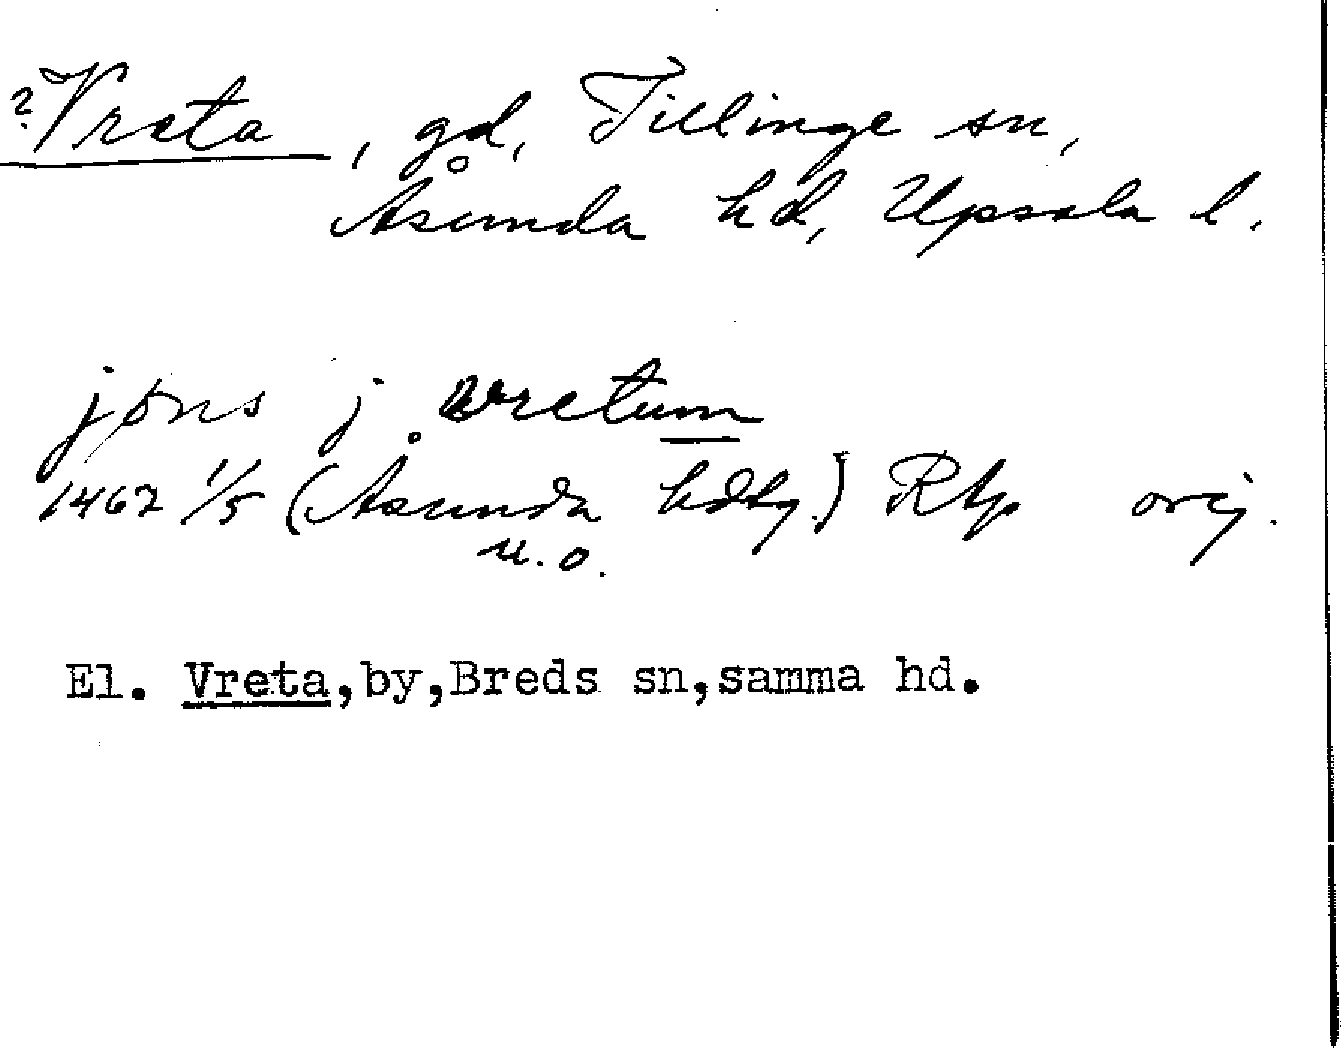 ? Vreta, gd, Tillinge sn,
Åsunda hd, Upsala l.
jøns j wretum
1462 1/5 (Åsunda hdtg.) RAp orig.
u.o.
El. Vreta,by,Breds sn,samma hd.